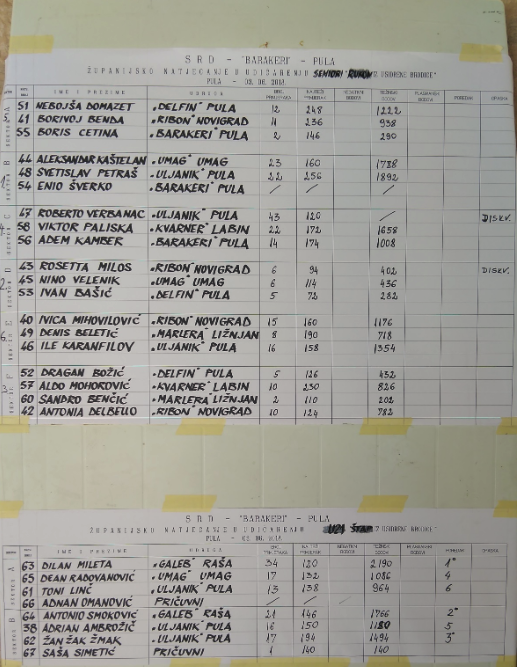 S R D - "BARAKERI" - PULA
ŽUPANIJSKO NATJECANJE U UDIČARENJU SENIORI IZ USIDRENE BRODICE"
PULA - 2018.
IME I PREZIME ADRESA
51 NEBOJŠA DOMAZET „DELFIN" PULA 12 248 1222
41 BORIVOJ BENDA „RIBON" NOVIGRAD 11 236 938
55 BORIS CETINA „BARAKERI" PULA 2 146 290
44 ALEKSANDAR KAŠTELAN „UMAG" UMAG 23 160 1788
48 SVETISLAV PETRAŠ „ULJANIK" PULA 22 256 1892
54 ENIO ŠVERKO „BARAKERI" PULA / / /
47 ROBERTO VERBANAC „ULJANIK" PULA 43 120 / DISKV.
58 VIKTOR PALISKA „KVARNER" LABIN 22 172 1658
56 ADEM KAMBER „BARAKERI" PULA 14 174 1008
43 ROSETTA MILOS „RIBON" NOVIGRAD 6 94 402 DISKV.
45 NINO VELENIK „UMAG" UMAG 6 114 436
53 IVAN BAŠIĆ „DELFIN" PULA 5 72 282
40 IVICA MIHOVILOVIĆ „RIBON" NOVIGRAD 15 160 1176
49 DENIS BELETIĆ „MARLERA" LIŽNJAN 8 190 718
46 ILE KARANFILOV „ULJANIK" PULA 16 158 1354
52 DRAGAN BOŽIĆ „DELFIN" PULA 5 126 432
57 ALDO MOHOROVIĆ „KVARNER" LABIN 10 230 826
60 SANDRO BENČIĆ „MARLERA" LIŽNJAN 2 110 202
42 ANTONIA DELBELLO „RIBON" NOVIGRAD 10 124 782
S R D - "BARAKERI" - PULA
ŽUPANIJSKO NATJECANJE U UDIČARENJU U21 ŠTAP IZ USIDRENE BRODICE"
PULA - 2018.
IME I PREZIME ADRESA
63 DILAN MILETA „GALEB" RAŠA 34 120 2190 1"
65 DEAN RADOVANOVIĆ „UMAG" UMAG 17 132 1086 4
61 TONI LINČ „ULJANIK" PULA 13 138 964 6
66 ADNAN OMANOVIĆ PRIČUVNI / /
64 ANTONIO SMOKOVIĆ „GALEB" RAŠA 21 146 1766 2"
38 ADRIAN AMBROŽIĆ „ULJANIK" PULA 16 150 1180 5
62 ŽAN ŽAK ŽMAK „ULJANIK" PULA 17 194 1494 3"
67 SAŠA SIMETIĆ PRIČUVNI 1 140 140